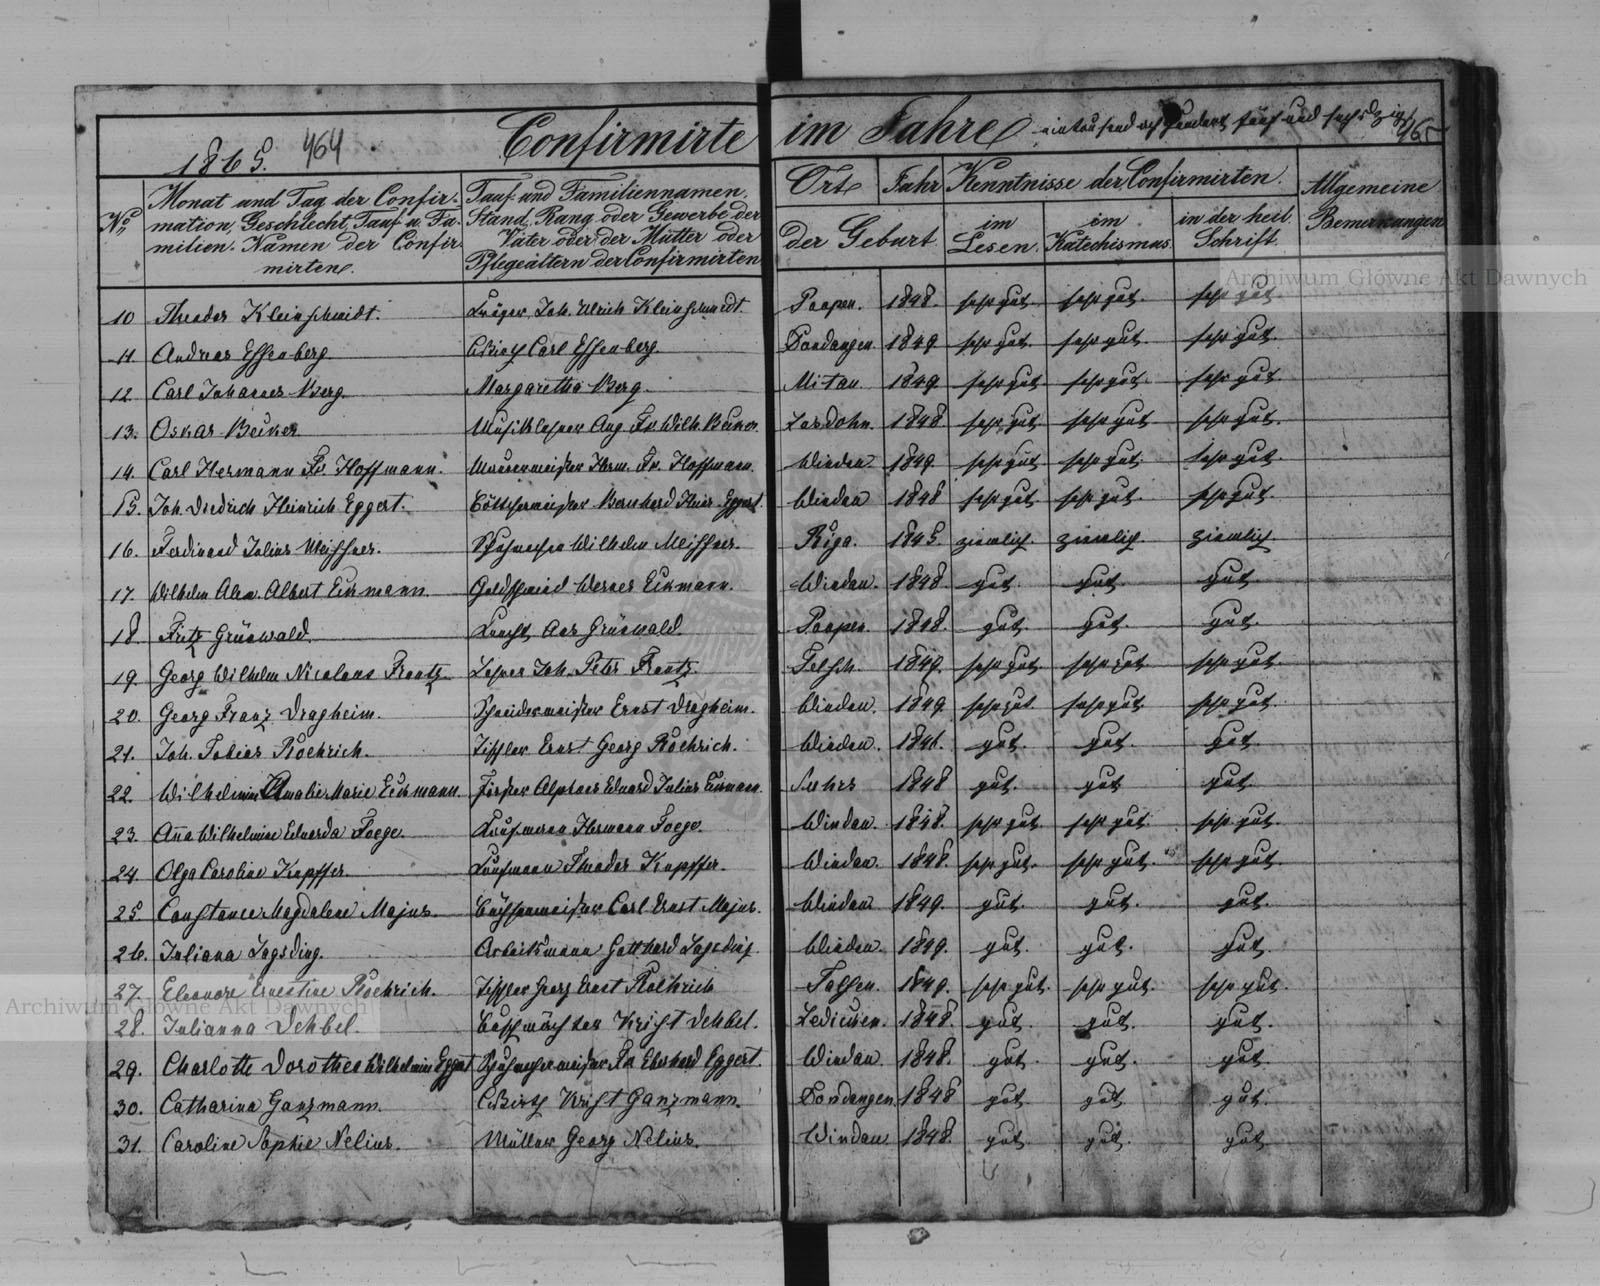 1865. 464 Confirmirte im Jahre eintausend achthundert fünf und sechszig 465
No Monat und Tag der Confir- Tauf- und Familiennamen, Ort Jahr Kenntnisse der Confirmirten. Allgemeine
mation, Geschlecht, Tauf- u. Fa- Stand, Rang oder Gewerbe der im im in der heil. Bemerkungen
milien-Namen der Confir- Väter oder der Mütter oder der Geburt. Lesen. Katechismus. Schrift.
mirten. Pflegeältern der Confirmirten
10 Theodor Kleinschmidt. Krüger Joh. Ulrich Kleinschmidt. Poopen. 1848. sehr gut sehr gut. sehr gut.
11. Andreas Essenberg Wirth Carl Essenberg. Dondangen. 1849 sehr gut sehr gut. sehr gut.
12 Carl Johannes Berg. Margaretha Berg. Mitau. 1849. sehr gut sehr gut. sehr gut.
13. Oskar Beuker Musiklehrer Aug. Fr. Wilh. Beuker. Lasdohn. 1848 sehr gut sehr gut sehr gut.
14. Carl Hermann Fr. Hoffmann. Maurermeister Herm. Fr. Hoffmann. Windau. 1849. sehr gut sehr gut. sehr gut.
15. Joh. Diedrich Heinrich Eggert. Böttchermeister Bernhard Heinr. Eggert. Windau 1848 sehr gut sehr gut. sehr gut.
16. Ferdinand Julius Meissner. Schuhmacher Wilhelm Meissner. Riga. 1845. ziemlich ziemlich. ziemlich
17. Wilhelm Alex. Albert Eckmann. Goldschmied Werner Eckmann. Windau. 1848. gut. gut. gut
18. Fritz Grünwald. Knecht Ans Grünwald. Poopen. 1848. gut. gut. gut.
19. Georg Wilhelm Nicolaus Frantz Lehrer Joh. Peter Frantz 1849. sehr gut sehr gut sehr gut.
20. Georg Franz Dragheim. Schneidermeister Ernst Dragheim. Windau. 1849. sehr gut. sehr gut sehr gut.
21. Joh. Tobias Roehrich. Tischler Ernst Georg Roehrich. Windau. gut. gut. gut
22. Wilhelmine Amalie Marie Eckmann. Förster Alphons Eduard Julius Eckmann. 1848 gut. gut gut.
23. Aña Wilhelmine Eduarda Foege. Kaufmann Hermann Foege. Windau. 1848. sehr gut. sehr gut. sehr gut.
24. Olga Caroline Kupffer Kaufmann Theodor Kupffer. Windau 1848. sehr gut. sehr gut. sehr gut.
25 Constance Magdalene Majus. Büchsenmeister Carl Ernst Majus. Windau 1849. gut. gut. gut.
26. Juliana Jagsding. Arbeitsmann Gotthard Jagsding. Windau. 1849. gut. gut. gut
27. Eleonore Ernestine Roehrich. Tischler Georg Ernst Roehrich Talsen. 1849. sehr gut. sehr gut. sehr gut.
28. Julianna Dehbel. Buschwächter Krist Dehbel. 1848. gut gut. gut.
29. Charlotte Dorothea Wilhelmine Eggert Schuhmachermeister Fr. Eberhard Eggert. Windau 1848. gut gut. gut
30. Catharina Ganzmann. Wirth Krist Ganzmann. Dondangen. 1848 gut gut gut.
31. Caroline Sophie Nelius. Müller Georg Nelius. Windau 1848. gut gut. gut
Archiwum Główne Akt Dawnych
Archiwum Główne Akt Dawnych